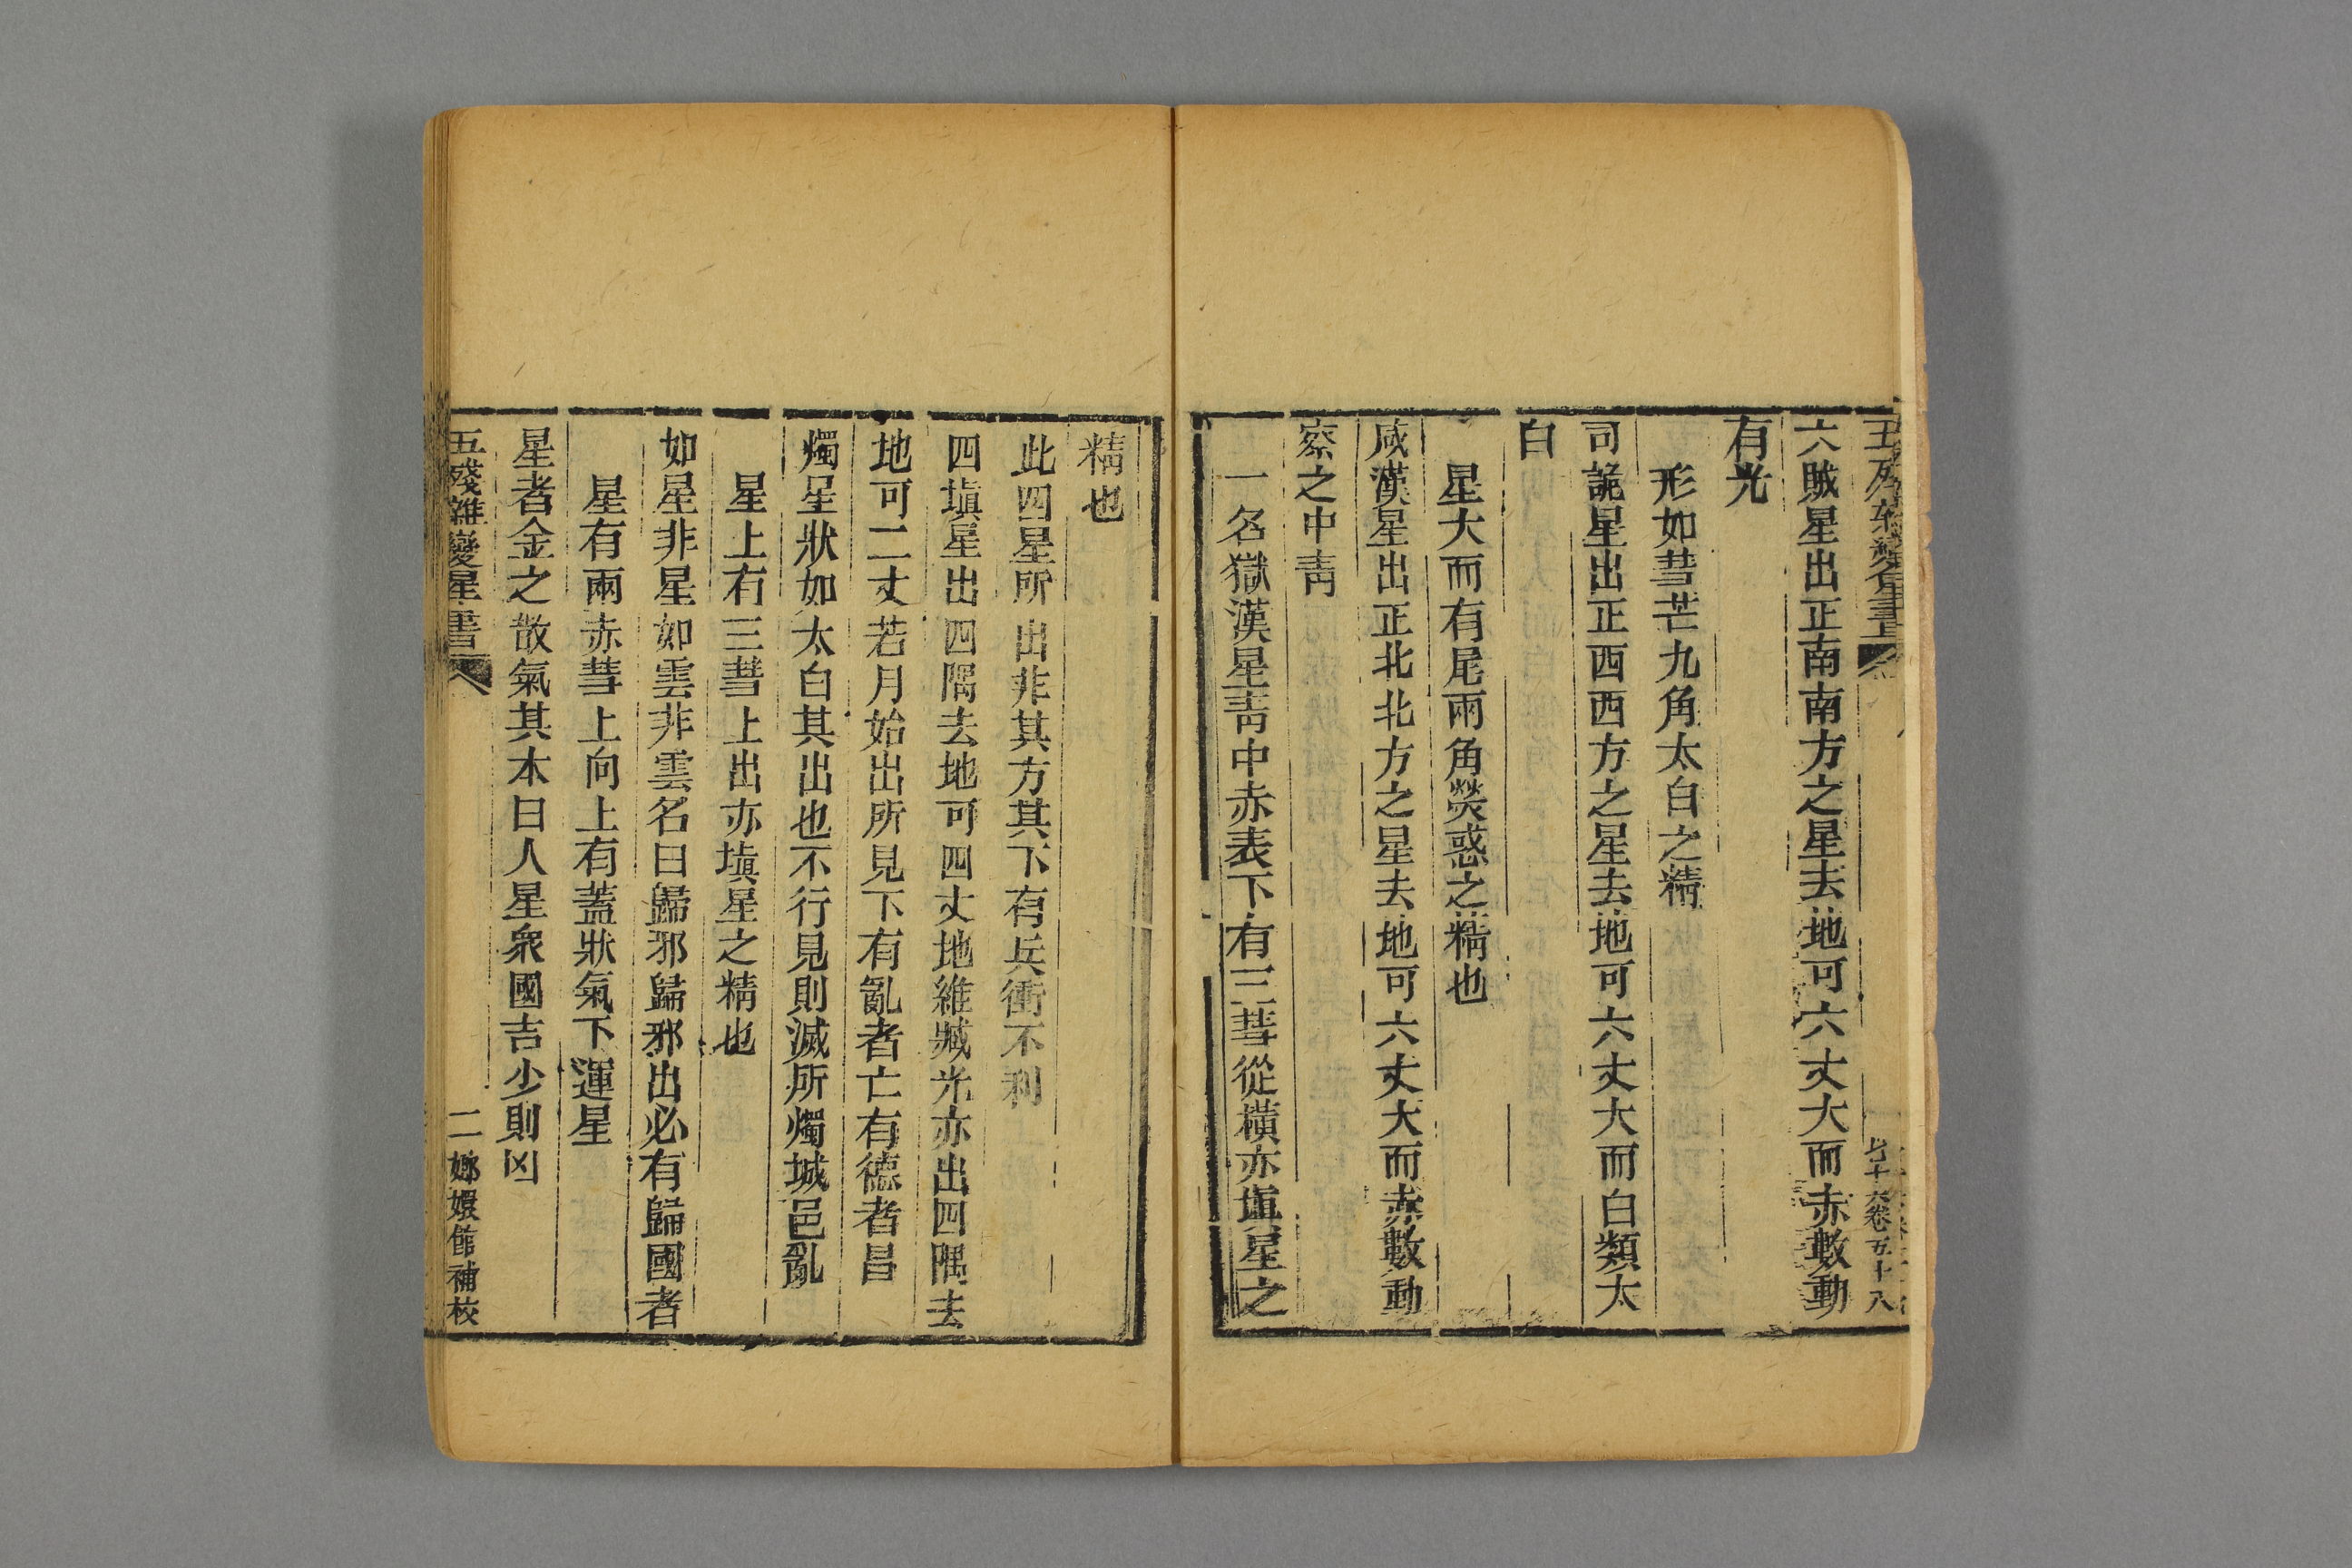 六賊星出正南南方之星去地可六丈大而赤數動
有光
形如彗芒九角太白之精
司詭星出正西西方之星去地可六丈大而白類太
白
星大而有尾兩角熒惑之精也
咸漢星出正北北方之星去地可六丈大而赤數動
察之中靑
一名獄漢星靑中赤表下有三彗從橫亦塡星之
精也
此四星所出非其方其下有兵衝不利
四塡星出四隅去地可四丈地維臧光亦出四隅去
地可二丈若月始出所見下有亂者亡有德者昌
燭星狀如太白其出也不行見則滅所燭城邑亂
星上有三彗上出亦塡星之精也
如星非星如雲非雲名曰歸邪歸邪出必有歸國者
星有兩赤彗上向上有蓋狀氣下運星
星者金之散氣其木曰人星衆國吉少則凶
五殘雜變星書
二 嫏嬛館補校